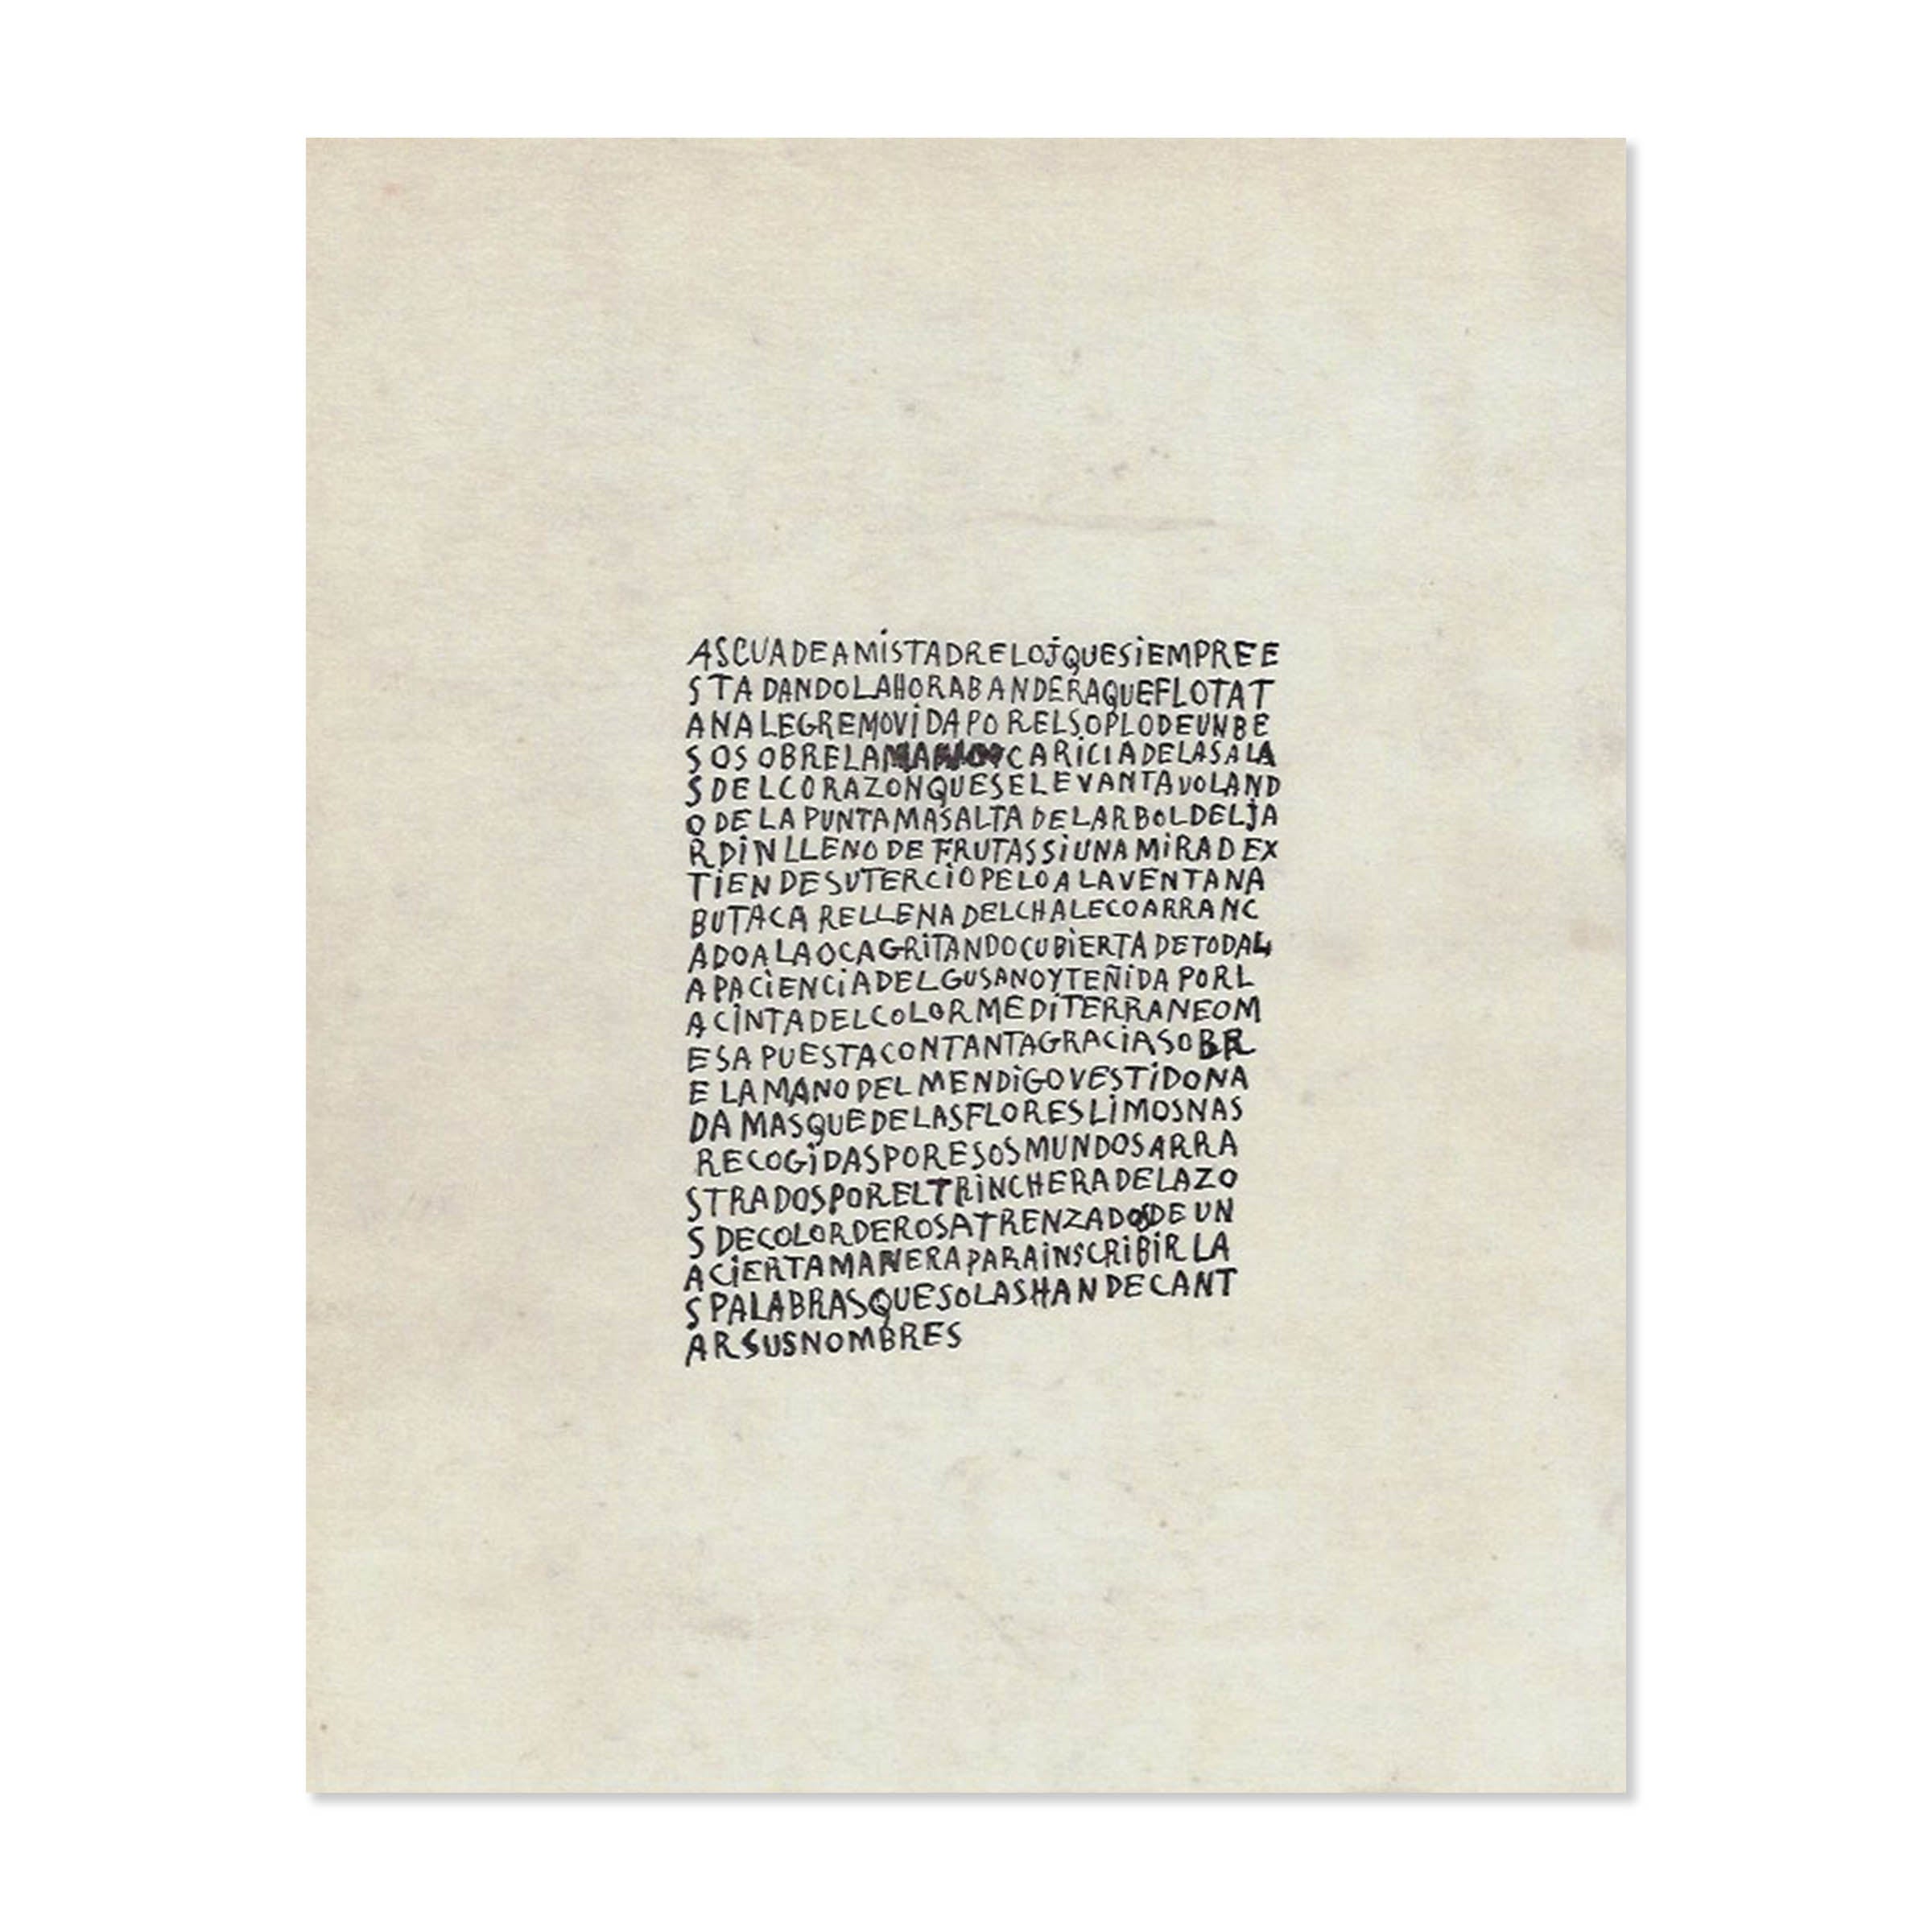 ASCUADEAMiSTADRELOjQUESiEMPREE
STA DANDOLAHORABANDERAQUEFLOTAT
ANALEGREMOViDAPORELSOPLODEUNBE
SOSOBRELA CARiCIADELASALA
SDELCORAZONQUESELEVANTAVOLAND
O DE LA PUNTAMASALTA DELARBOLDELjA
RDiNLLENO DE FRUTASSiUNA MiRADEX
TiENDESUTERCiOPELOALAVENTANA
BUTACA RELLENA DELCHALECOARRANC
ADOALAOCAGRiTANDOCUBiERTA DETODAL
A PACiENCiADELGUSANOYTEÑiDA PORL
A CiNTADELCOLORMEDiTERRANEOM
ESA PUESTACONTANTAGRACiASOBR
E LAMANODELMENDiGOVESTiDONA
DA MASQUEDELASFLORESLiMOSNAS
RECOGiDASPORESOSMUNDOSARRA
STRADOSPORELTRiNCHERADELAZO
S DECOLORDEROSATRENZADOSDEUN
ACiERTAMANERAPARAiNSCRiBiRLA
SPALABRASQUESOLASHANDECANT
ARSUSNOMBRES